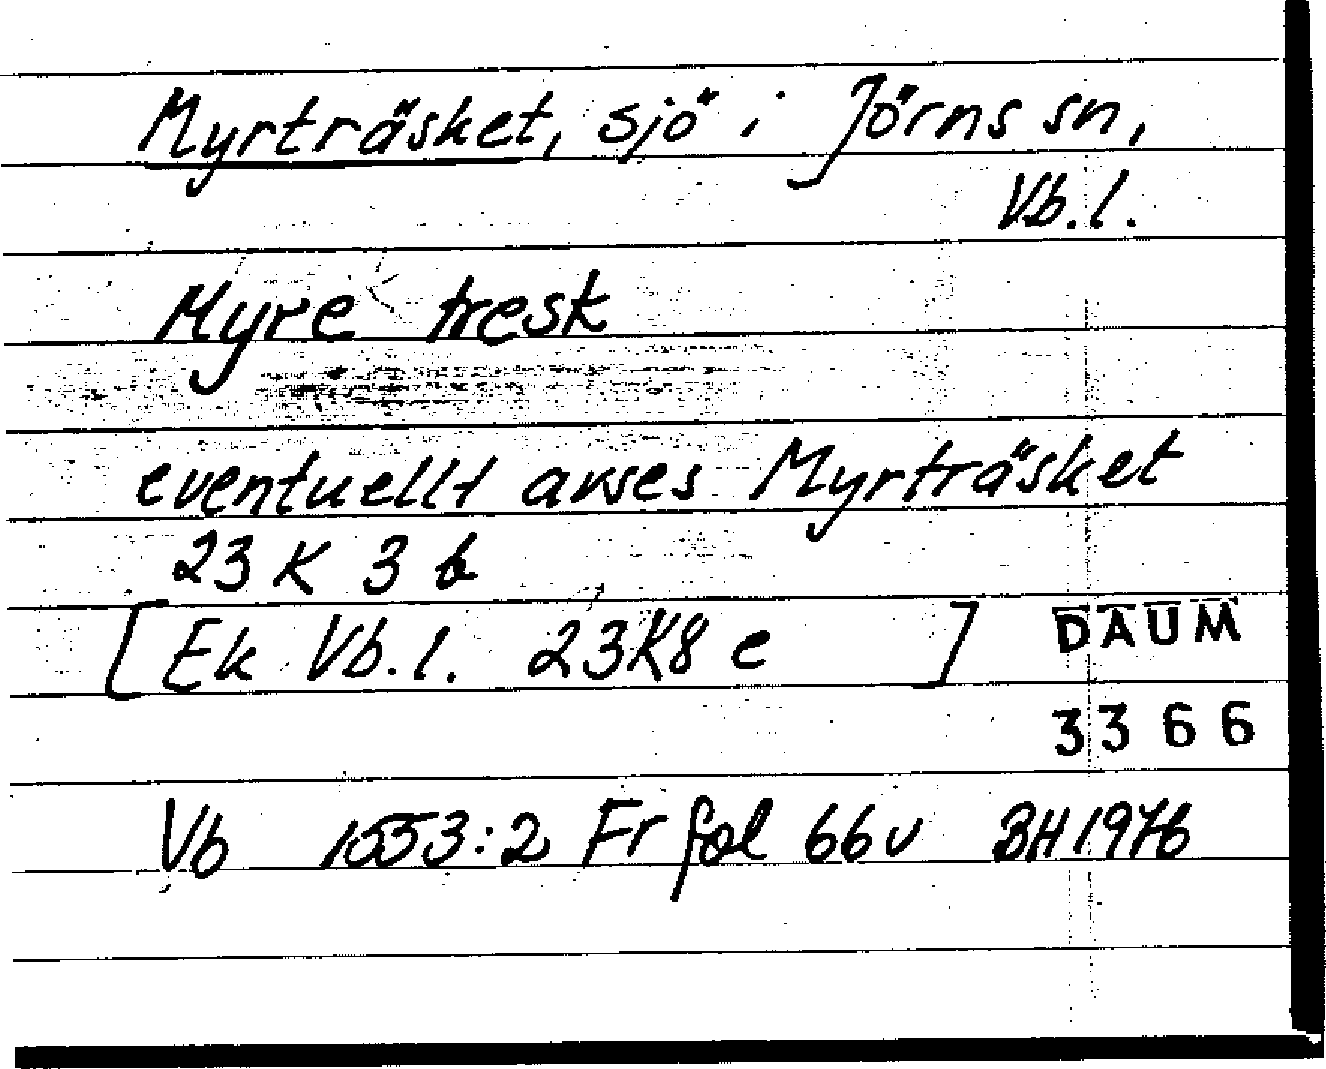 Myrträsket, sjö i Jörns sn,
Vb.l.
Myre tresk
eventuellt avses Myrträsket
23 K 3 b
[Ek Vb.l. 23K8 e ]
DAUM
3366
Vb 1553:2 Fr fol 66v BH 1976